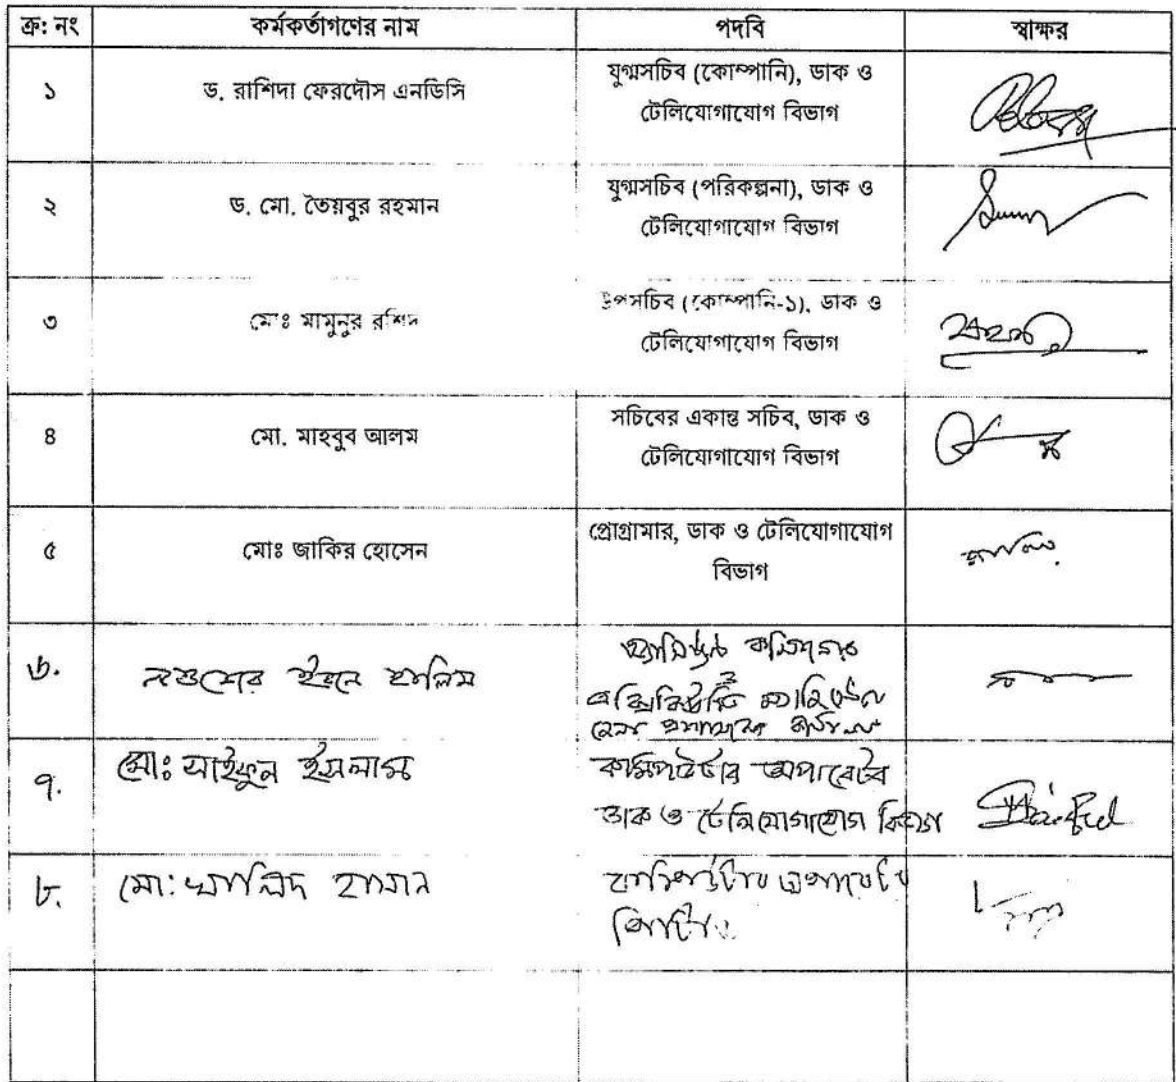 ক্র: নং কর্মকর্তাগণের নাম পদবি স্বাক্ষর
১ ড. রাশিদা ফেরদৌস এনডিসি যুগ্মসচিব (কোম্পানি), ডাক ও
টেলিযোগাযোগ বিভাগ
২ ড. মো. তৈয়বুর রহমান যুগ্মসচিব (পরিকল্পনা), ডাক ও
টেলিযোগাযোগ বিভাগ
৩ মোঃ মামুনুর রশিদ উপসচিব (কোম্পানি-১), ডাক ও
টেলিযোগাযোগ বিভাগ
৪ মো. মাহবুব আলম সচিবের একান্ত সচিব, ডাক ও
টেলিযোগাযোগ বিভাগ
৫ মোঃ জাকির হোসেন প্রোগ্রামার, ডাক ও টেলিযোগাযোগ
বিভাগ
৬. ইবনে হালিম
৭. মোঃ সাইফুল ইসলাম কম্পিউটার অপারেটর
ডাক ও টেলিযোগাযোগ বিভাগ
৮. মো: খালিদ হাসান কম্পিউটার অপারেটর